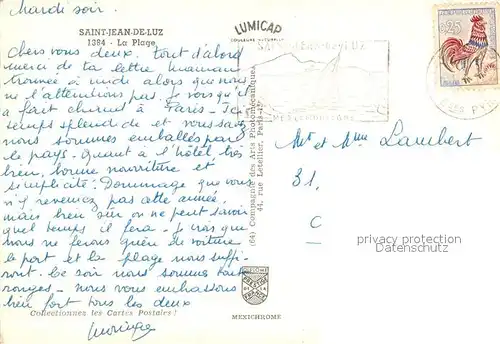 Mardi soir.
SAINT-JEAN-DE-LUZ
1384 - La Plage
Chers vous deux. Tout d'abord
merci de ta lettre maman
trouvée à midi alors que nous
ne l'attentions pas. Je vois qu'il
a fait chaud à Paris - Ici
temps splendide et vous savez
nous sommes emballés par
le pays. Quant à l'hôtel très
bien, bonne nourriture et
simplicité. Dommage que vous
n'y revenez pas cette année.
mais bien sûr on ne peut savoir
quel temps il fera - Je crois que
nous ne ferons guère de voiture
le port et la plage nous suffi-
ront. Ce soir nous sommes tout
rouges - nous vous embrassons
bien fort tous les deux
Collectionnez les Cartes Postales !
LUMICAP
COULEURS NATURELLES
SAINT-JEAN-DE-LUZ
0,25
(64) Compagnie des Arts Photomécaniques
44, rue Letellier, Paris-15
MEXICHROME
Mr et Mme Lambert
31.
C
privacy protection
watermark